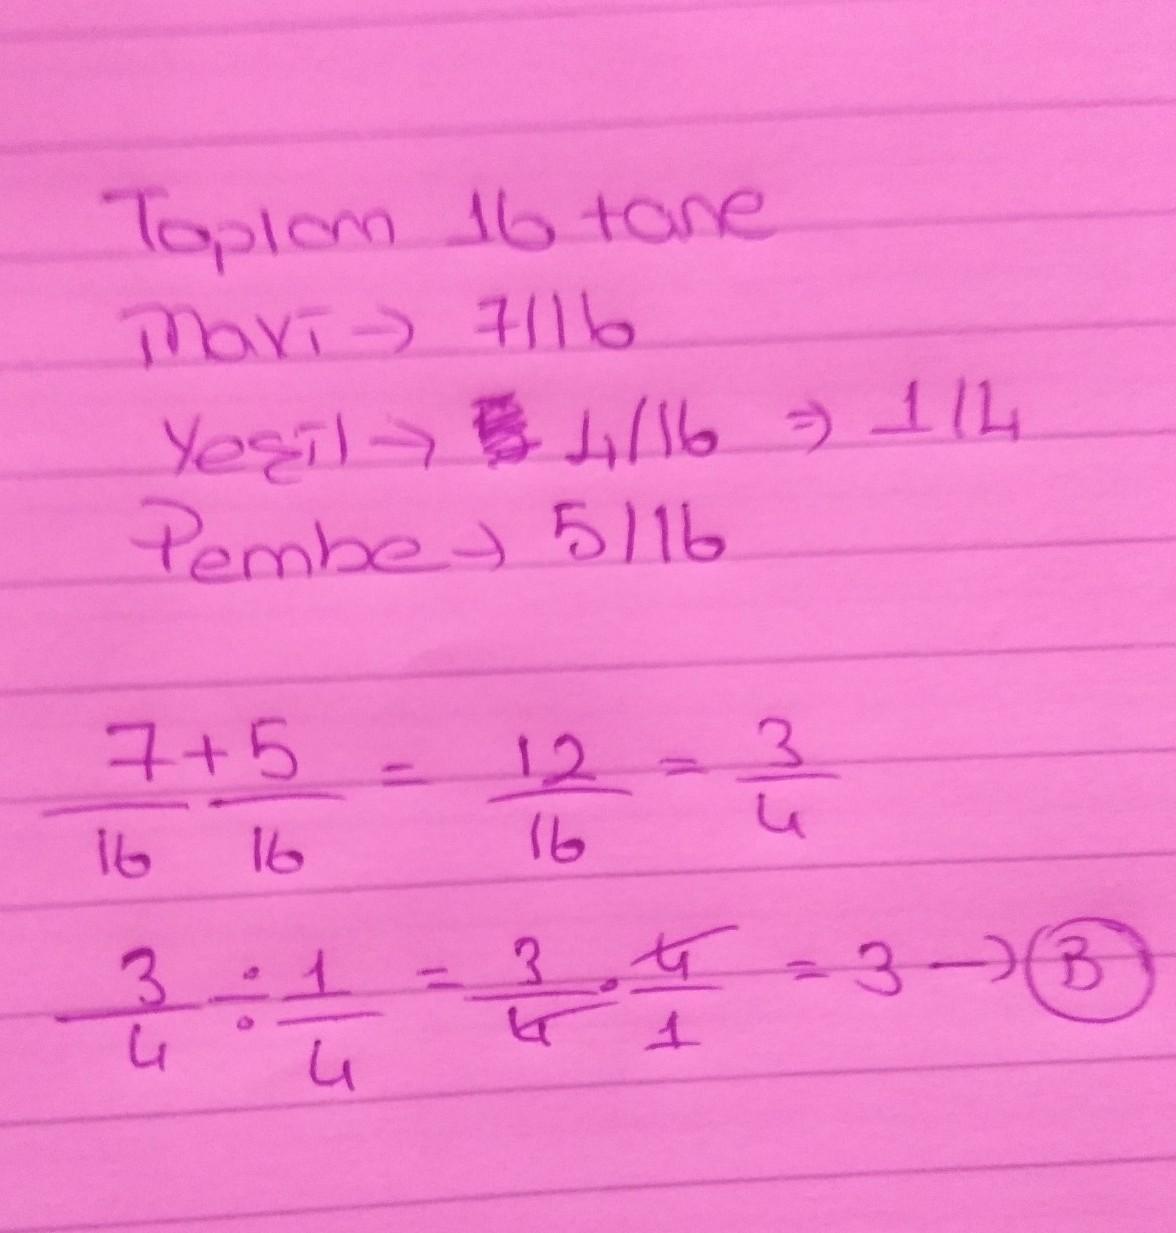 Toplam 16 tane
Mavi → 7/16
Yeşil → 4/16 ⇒ 1/4
Pembe → 5/16
7/16 + 5/16 = 12/16 = 3/4
3/4 ÷ 1/4 = 3/4 . 4/1 = 3 → B